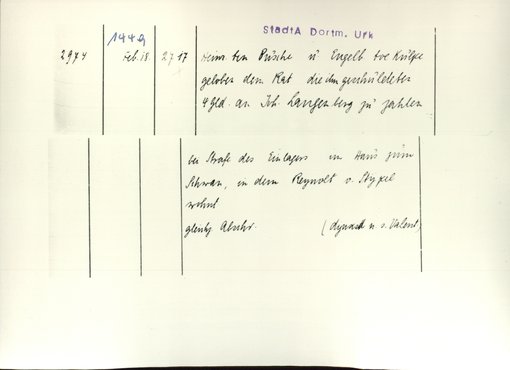 StadtA Dortm. Urk
1449
2974 Feb. 18. 2717 Heinr. ten Büsche u Engelb toe Külpe
geloben dem Rat die ihm geschuldeten
4 Gld. an Joh. Langenberg zu zahlen
bei Strafe des Einlagers im Haus zum
Schwan, in dem Reynolt v. Stypel
wohnt
gleichz Abschr. ( n. s. Valent)